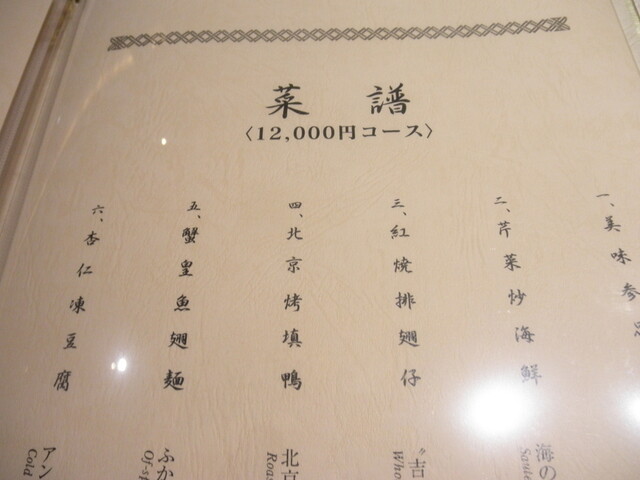 菜譜
〈12,000円コース〉
一、美味参
二、芹菜炒海鮮
三、紅焼排翅仔
四、北京烤填鴨
五、蟹皇魚翅麺
六、杏仁凍豆腐
海の
Saute
〝吉
Who
北京
Roas
ふか
Of-s
アン
Cold